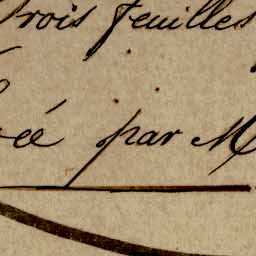 Trois feuilles
ée par M